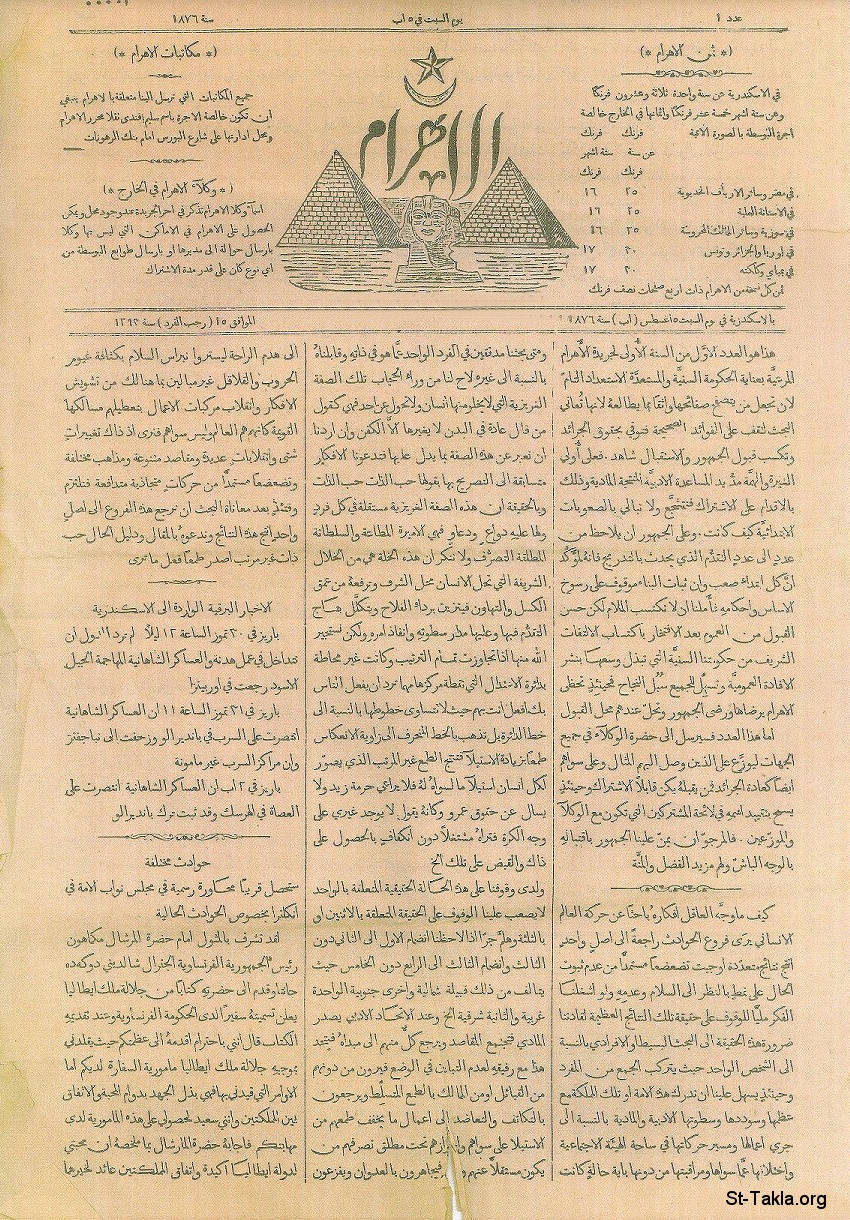 عدد ١
يوم السبت في ٥ اب
سنة ١٨٧٦
(* ثمن الاهرام *)
في الاسكندرية عن سنة واحدة ثلاثة وعشرون فرنكًا
وعن ستة اشهر خمسة عشر فرنكًا واثمانها في الخارج خالصة
اجرة البوسطة بالصورة الاتية
فرنك فرنك
عن سنة ستة اشهر
فرنك فرنك
في مصر وسائر الارياف الخديوية ٢٥ ١٦
في الاستانة العلية ٢٥ ١٦
في سورية وسائر الممالك المحروسة ٢٥ ١٦
في اوربا والجزائر وتونس ٣٠ ١٧
في بمباي وكلكته ٣٠ ١٧
ثمن كل نسخة من الاهرام ذات اربع صفحات نصف فرنك
الاهرام
(* مكاتبات الاهرام *)
جميع المكاتبات التي ترسل الينا متعلقة بالاهرام ينبغي
ان تكون خالصة الاجرة باسم سليم افندي نقلا محرر الاهرام
ومحل ادارتها على شارع البورس امام بنك الرهونات
(* وكلآء الاهرام في الخارج *)
اسمآء وكلا الاهرام تذكر في اخر الجريدة عند وجود محل ويمكن
الحصول على الاهرام في الاماكن التي ليس بها وكلا
بارسال حوالة الى مديرها او بارسال طوابع البوسطة من
اي نوع كان على قدر مدة الاشتراك
بالاسكندرية في يوم السبت ٥ اغسطس (اب) سنة ١٨٧٦
الموافق ١٥ (رجب الفرد) سنة ١٢٩٣
هذا هو العدد الاوَّل من السنة الأولى لجريدة الأهرام
المرعيَّة بعناية الحكومة السنيَّة والمستعدَّة الاستعداد التامّ
لان تجعل من يتصفح صفائحها واثقًا بما يطالعهُ لانها تُعاني
البحث لتقف على الفوائد الصحيحة فتوفي بحقوق الجرائد
وتكسب قبول الجمهور والاستقبال شاهد. فعلى أولي
الغيرة والهمَّة مدُّ يد المساعدة الادبيَّة المنتجة الماديَّة وذلك
بالاقدام على الاشتراك فتنجح ولا نبالي بالصعوبات
الابتدائيَّة كيف كانت. وعلى الجمهور ان يلاحظ من
عددٍ الى عدد التقدُّم الذي يحدث بالتدريج فانهُ لمؤكَّد
انَّ كل ابتداء صعب وان ثبات البناء موقوف على رسوخ
الاساس واحكامهِ فأملنا ان لا نكتسب الملام لكن حسن
القبول من العموم بعد الافتخار باكتساب الالتفات
الشريف من حكومتنا السنيَّة التي تبذل وسعها بنشر
الافادة العموميَّة وتسهِّل للجميع سُبُل النجاح فحينئذٍ تحظى
الاهرام برضاها ورضى الجمهور وتحلّ عندهم محل القبول
اما هذا العدد فسيرسل الى حضرة الوكلآء في جميع
الجهات ليوزَّع على الذين وصل اليهم المثال وعلى سواهم
ايضًا كعادة الجرائد فمن يقبلهُ يكن قابلًا الاشتراك وحينئذٍ
يسمح بتقييد اسمهِ في لائحة المشتركين التي تكون مع الوكلآ
والموزّعين. فالمرجوّ ان يمنّ علينا الجمهور باقتبالهِ
بالوجه الباشّ ولهم مزيد الفضل والمنَّة
كيف ما وجَّه العاقل افكارهُ باحثًا عن حركة العالم
الانساني يرَى فروع الحوادث راجعةً الى اصلٍ واحدٍ
انتج نتائج متعددة اوجبت تضعضعًا مستمدًّا من عدم ثبوت
الحال على نمطٍ بالنظر الى السلام وعدمهِ ولو اشغلنا
الفكر مليًّا للوقوف على حقيقة تلك النتائج العظيمة لقادتنا
ضرورة هذه الحقيقة الى البحث البسيط او الافرادي بالنسبة
الى الشخص الواحد حيث يتركب الجمع من المفرد
وحينئذٍ يسهل علينا ان ندرك هذه الامة او تلك المملكة مع
عظمها وسوددها وسطوتها الادبية والمادية بالنسبة الى
جري اعمالها ومسير حركاتها في ساحة الهيئة الاجتماعية
واختلافها عمَّا سواها ومراقبتها من دونها باية حالةٍ كانت
ومتى بحثنا مدققين في الفرد الواحد عمَّا هو في ذاتهِ وقابلناهُ
بالنسبة الى غيرهِ لاح لنا من وراء الحجاب تلك الصفة
الغريزية التي لا يخلو منها انسان ولا تحول عن احد فهي كقول
من قال عادة في البدن لا يغيرها الَّا الكفن وان اردنا
ان نعبر عن هذه الصفة بما يدل عليها فتدعونا الافكار
متسابقة الى التصريح بها بقولها حب الذات حب الذات
وبالحقيقة ان هذه الصفة الغريزية مستقلة في كل فردٍ
ولها عليهِ دواعٍ ودعاوٍ فهي الاميرة المطاعة والسلطانة
المطلقة التصرُّف ولا ننكر ان هذه الخلة هي من الخلال
الشريفة التي تحل الانسان محل الشرف وترفعهُ من عمق
الكسل والتهاون فيتزين برداء الفلاح ويتكلَّل بتاج
التقدُّم فبها وعليها مدار سطوتهِ وانفاذ امرهِ ولكن نستجير
الله منها اذا تجاوزت تمام الترتيب وكانت غير محاطة
بدائرة الامتثال التي نقطة مركزها مهما ترد ان يفعل الناس
بك افعل انت بهم حيث لا تتساوى خطوطها بالنسبة الى
خط الدائرة بل تذهب بالخط المنحرف الى زاوية الانعكاس
طمعًا بزيادة الاستيلآ فتنتج الطمع غير المرتب الذي يصوّر
لكل انسان استيلآ ما لسواهُ لهُ فلا يراعي حرمة زيد ولا
يسال عن حقوق عمرو وكانهُ يقول لا يوجد غيري على
وجه الكرة فتراهُ مشتغلًا دون انكفافٍ بالحصول على
ذاك والقبض على تلك الخ
ولدى وقوفنا على هذه الحالة الحقيقية المتعلقة بالواحد
لا يصعب علينا الوقوف على الحقيقة المتعلقة بالاثنين او
بالثلثة وهلمَّ جرًّا اذا لاحظنا انضمام الاول الى الثاني دون
الثالث وانضمام الثالث الى الرابع دون الخامس حيث
يتالف من ذلك قبيلة شمالية واخرى جنوبية الواحدة
غربية والثانية شرقية الخ وعند الاتحاد الادبي يصدر
المادي فتجتمع المقاصد ويرجع كلٌّ منهم الى مبداهُ فيتحد
هذا مع رفيقهِ لعدم التباين في الوضع فيرون من دونهم
من القبائل او من الممالك بالطمع المتسلّط ويرجعون
بالتكاتف والتعاضد الى اعمال ما يخفف طمعهم من
الاستيلا على سواهم تحت مطلق تصرفهم من
يكون مستقلًّا عنهم فيجاهرون بالعدوان ويفزعون
الى هدم الراحة ليستروا نبراس السلام بكثافة غيوم
الحروب والقلاقل غير مبالين بما هنالك من تشويش
الافكار وانقلاب مركبات الاعمال بتعطيلهم مسالكها
القوية كانهم هم العالم وليس سواهم فنرى اذ ذاك تغييرات
شتى وانقلابات عديدة ومقاصد متنوعة ومذاهب مختلفة
وتضعضعًا مستمدًّا من حركاتٍ متجاذبة متدافعة فنلتزم
وقتئذٍ بعد معاناة البحث ان نرجع هذه الفروع الى اصلٍ
واحد انتج هذه النتائج وندعوهُ بالمقال ودليل الحال حب
ذات غير مرتب اصدر طمعًا فعل ما ترى
الاخبار البرقية الواردة الى الاسكندرية
باريز في ٣٠ تموز الساعة ١٢ ليلًا لم ترد الدول ان
تتداخل في عمل هدنة والعساكر الشاهانية المهاجمة الجبل
الاسود رجعت في اوربيتزا
باريز في ٣١ تموز الساعة ١١ ان العساكر الشاهانية
انتصرت على السرب في بانديرالو وزحفت الى نباجنتز
وان مراكز السرب غير مامونة
باريز في ٢ اب ان العساكر الشاهانية انتصرت على
العصاة في الهرسك وقد ثبت ترك بانديرالو
حوادث مختلفة
ستحصل قريبًا محاورة رسمية في مجلس نواب الامة في
انكلترا بخصوص الحوادث الحالية
لقد تشرف بالمثول امام حضرة المرشال مكماهون
رئيس الجمهورية الفرنساوية الجنرال شالديني دوكه ده
جاتا وقدم الى حضرتهِ كتابًا من جلالة ملك ايطاليا
يعلن تسميتهُ سفيرًا لدى الحكومة الفرنساوية وعند تقديمهِ
الكتاب قال انني باحترام اقدمهُ الى عظمتكم حيث يقلدني
بموجبهِ جلالة ملك ايطاليا مامورية السفارة لديكم اما
الاوامر التي قيدني بها فهي بذل الجهد بدوام المحبة والاتفاق
بين المملكتين وانني سعيد لحصولي على هذه المامورية لدى
مهابتكم فاجابهُ حضرة المارشال بما ملخصهُ ان محبتي
لدولة ايطاليا اكيدة واتفاق المملكتين عائد لخيرها
St-Takla.org